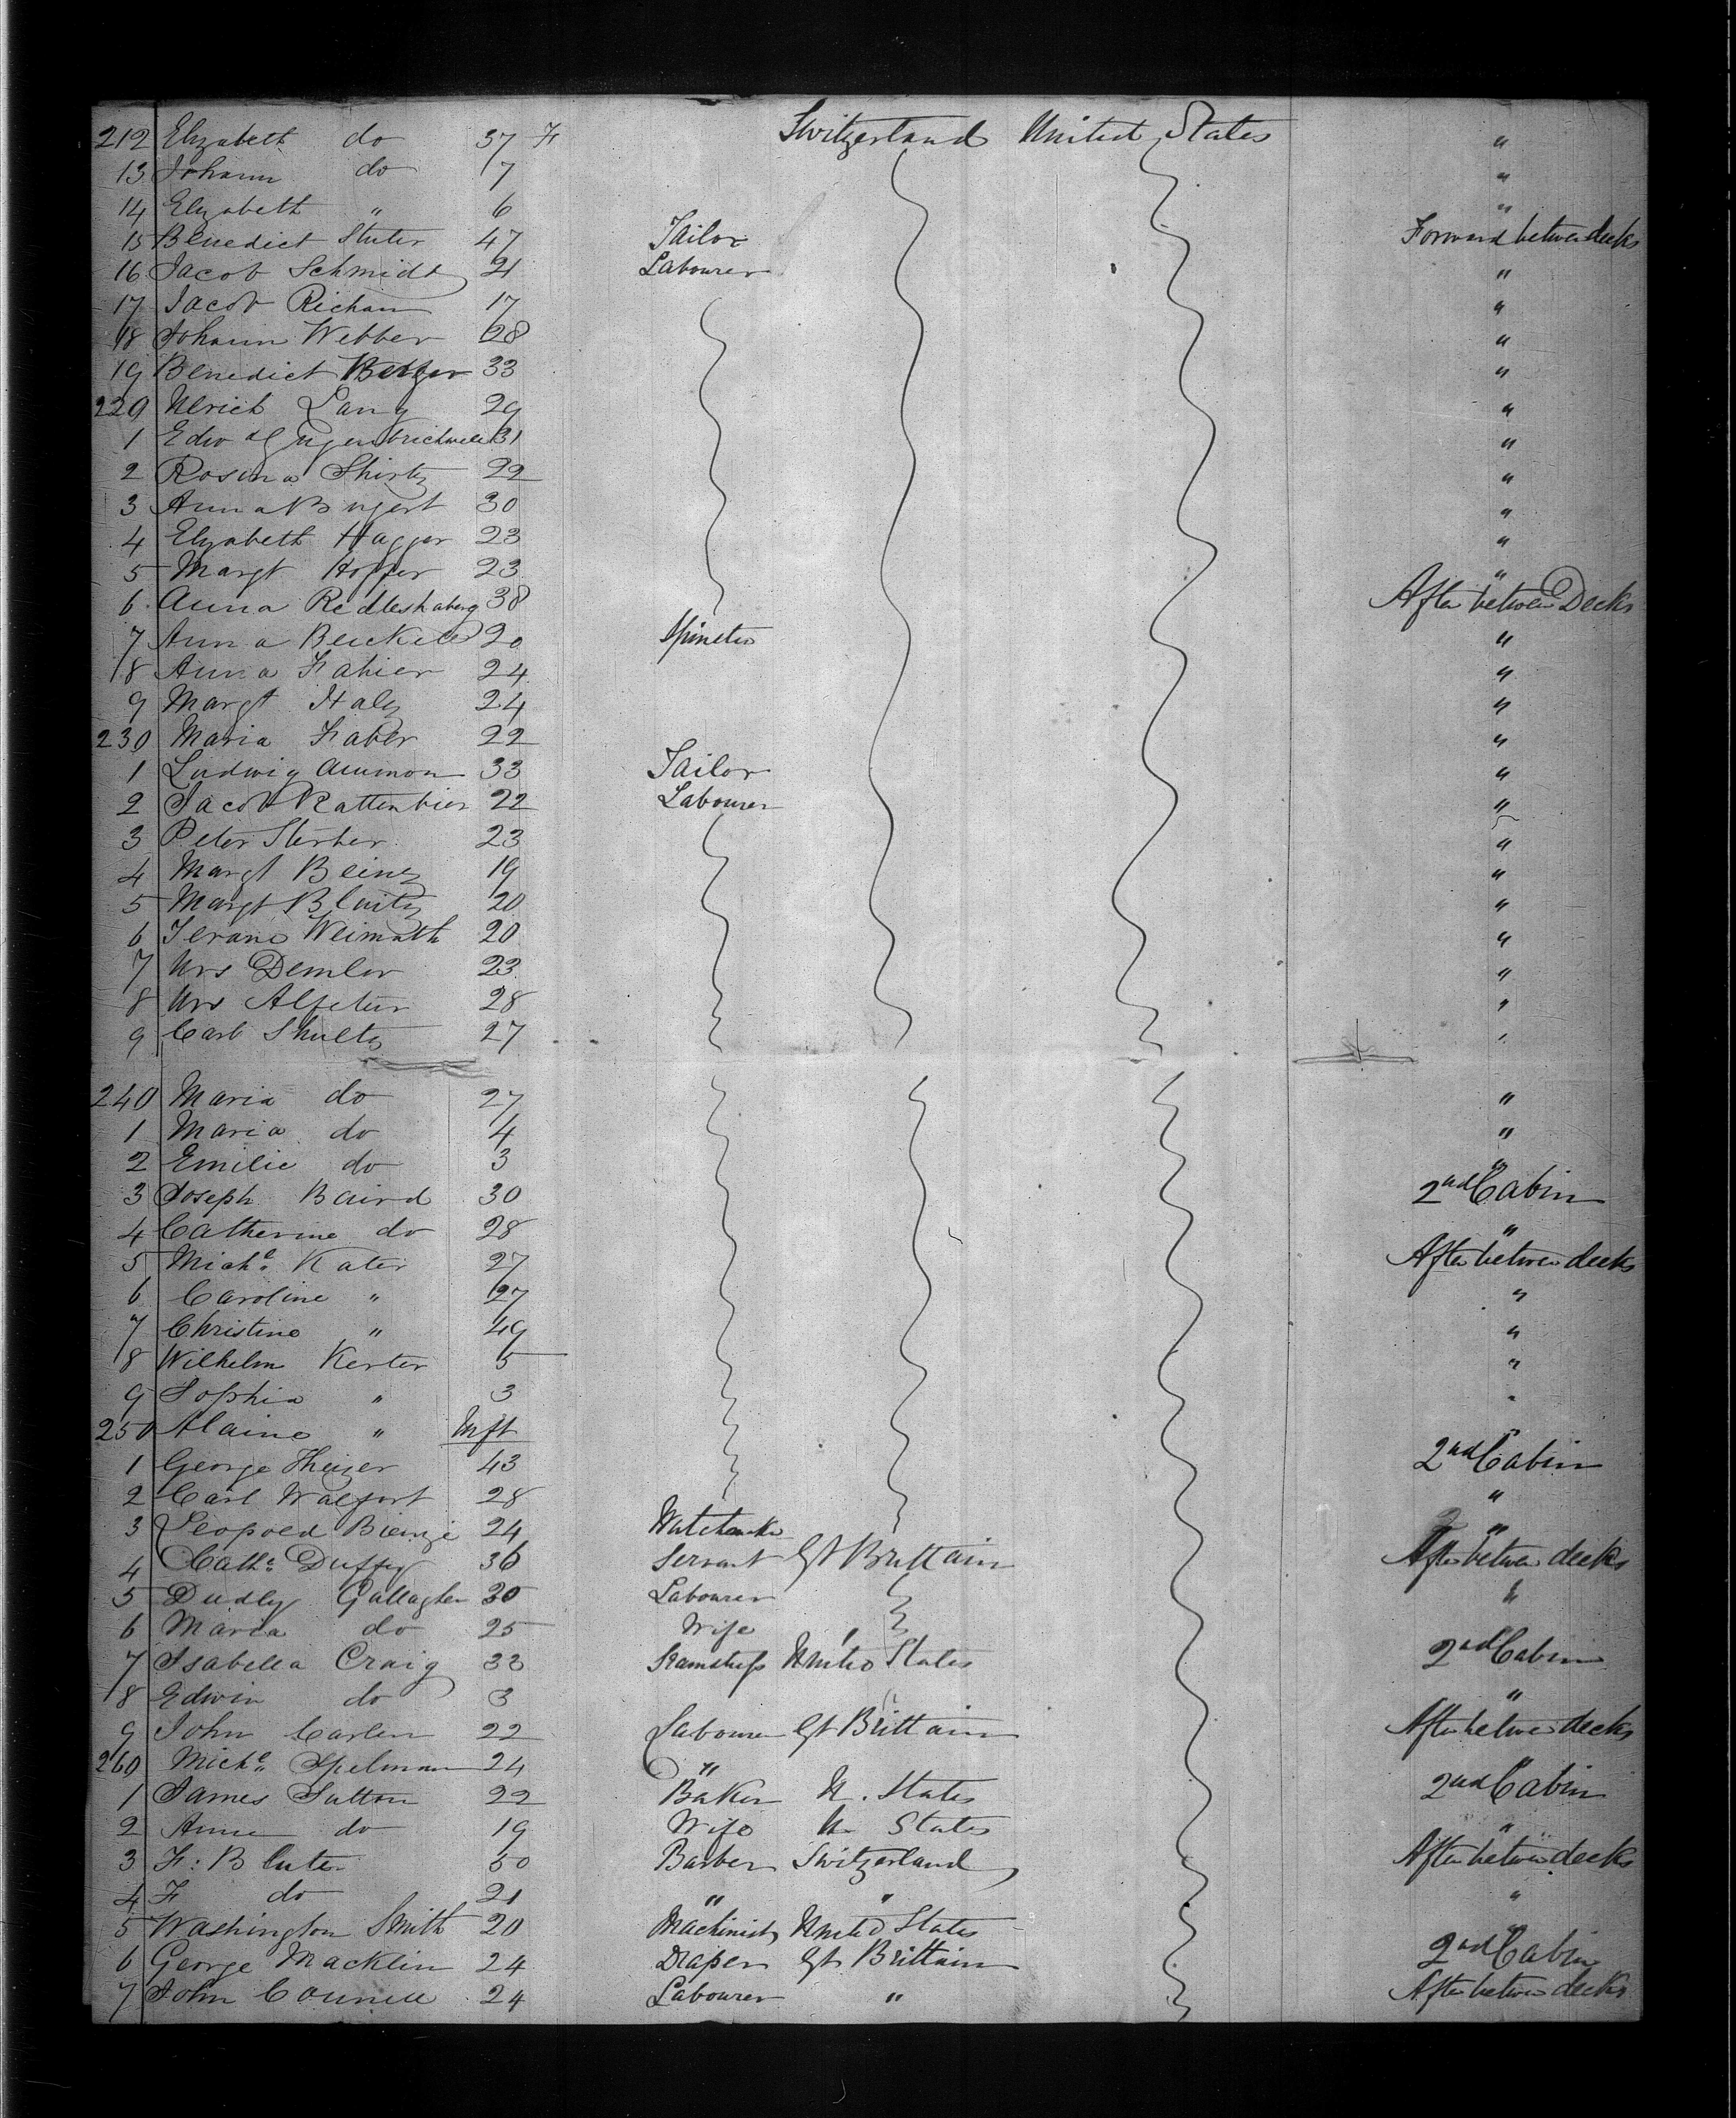 212 Elizabeth do 37 F Switzerland United States "
13 Johann do 7 "
14 Elizabeth " 6 "
15 Benedict Stuter 47 Tailor Forward between decks
16 Jacob Schmidt 21 Labourer "
17 Jacob Richam 17 "
18 Johann Webber 28 "
19 Benedict 33 "
220 Ulrich Lang 29 "
1 Edw 31 "
2 Rosina Shirtz 22 "
3 Anna Bugert 30 "
4 Elizabeth Hagger 23 "
5 Margt Hopfer 23 "
6 Anna 38 After between Decks
7 Anna 20 Spinster "
8 Anna Fahier 24 "
9 Margt Haly 24 "
230 Maria Faber 22 "
1 Ludwig Aumon 33 Tailor "
2 Jacob Rattenbier 22 Labourer "
3 Peter Sterher 23 "
4 Margt Beinz 19 "
5 Margt Bluitz 20 "
6 Weimuth 20 "
7 Urs Demler 23 "
8 Urs 28 "
9 Carl Shultz 27 "
240 Maria do 27 "
1 Maria do 4 "
2 Emilie do 3 "
3 Joseph Baird 30 2nd Cabin
4 Catherine do 28 "
5 Michl Kater 27 After between decks
6 Caroline " 27 "
7 Christine " 49 "
8 Wilhelm Kerter 5 "
9 Sophia " 3 "
250 Alaine " Inft "
1 George Theizer 43 2nd Cabin
2 Carl Walfort 28 "
3 Leopold Bienze 24 Watchmaker "
4 Cathe Duffy 36 Servant Gt Brittain After between decks
5 Dudly Gallagher 30 Labourer "
6 Maria do 25 Wife "
7 Isabella Craig 33 Seamstress United States 2nd Cabin
8 Edwin do 3 "
9 John Carlen 22 Labourer Gt Brittain After between decks
260 Michl Spelman 24 " "
1 James Sutton 22 Baker U. States 2nd Cabin
2 Anne do 19 Wife U States "
3 F: Bluter 50 Barber Switzerland After between decks
4 F do 21 " " "
5 Washington Smith 20 Machinist United States "
6 George Macklin 24 Draper Gt Brittain 2nd Cabin
7 John Connell 24 Labourer " After between decks